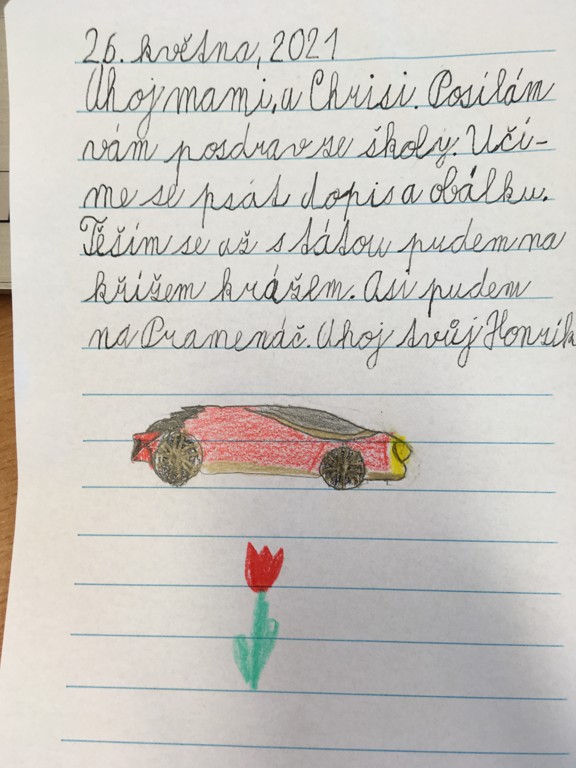 26. května, 2021
Ahoj mami, a Chrisi. Posílám
vám posdrav ze školy. Učí-
me se psát dopis a obálku.
Těším se až s tátou pudem na
křížem krážem. Asi pudem
na Pramenáč. Ahoj tvůj Honzík